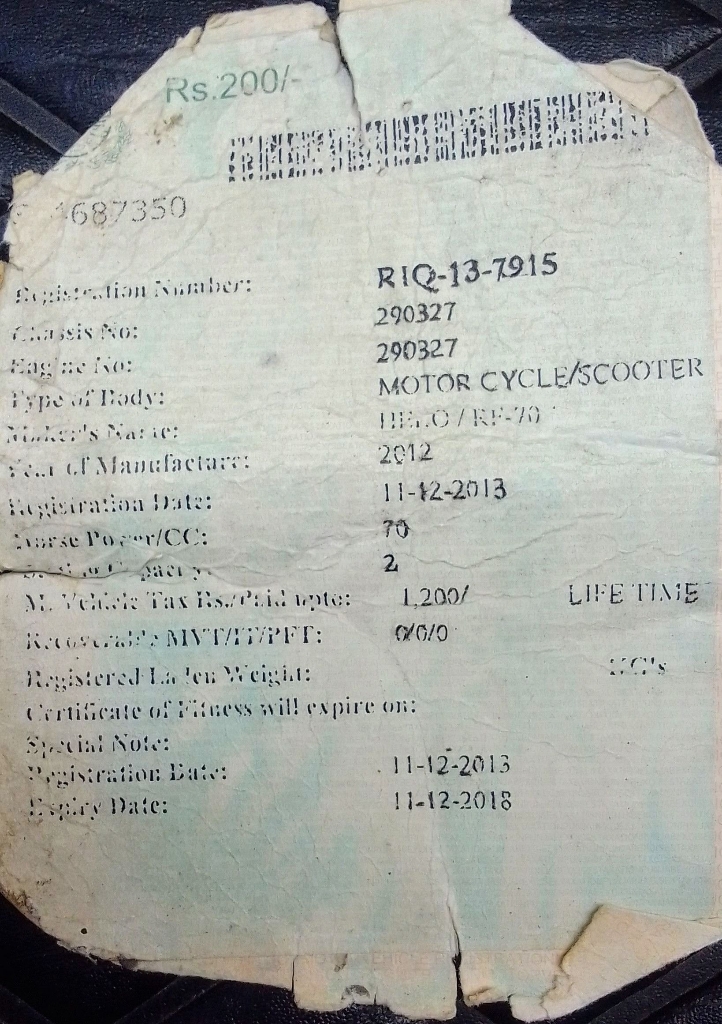 Rs.200/-
687350
Registration Number: RIQ-13-7915
Chassis No: 290327
Engine No: 290327
Type of Body: MOTOR CYCLE/SCOOTER
Maker's Name: HELO / RF-70
Year of Manufacture: 2012
Registration Date: 11-12-2013
Horse Power/CC: 70
Capacity: 2
M. Vehicle Tax Rs./Paid upto: 1,200/ LIFE TIME
Recoverable MVT/IT/PFT: 0/0/0
Registered Laden Weight: KG's
Certificate of Fitness will expire on:
Special Note:
Registration Date: 11-12-2013
Expiry Date: 11-12-2018